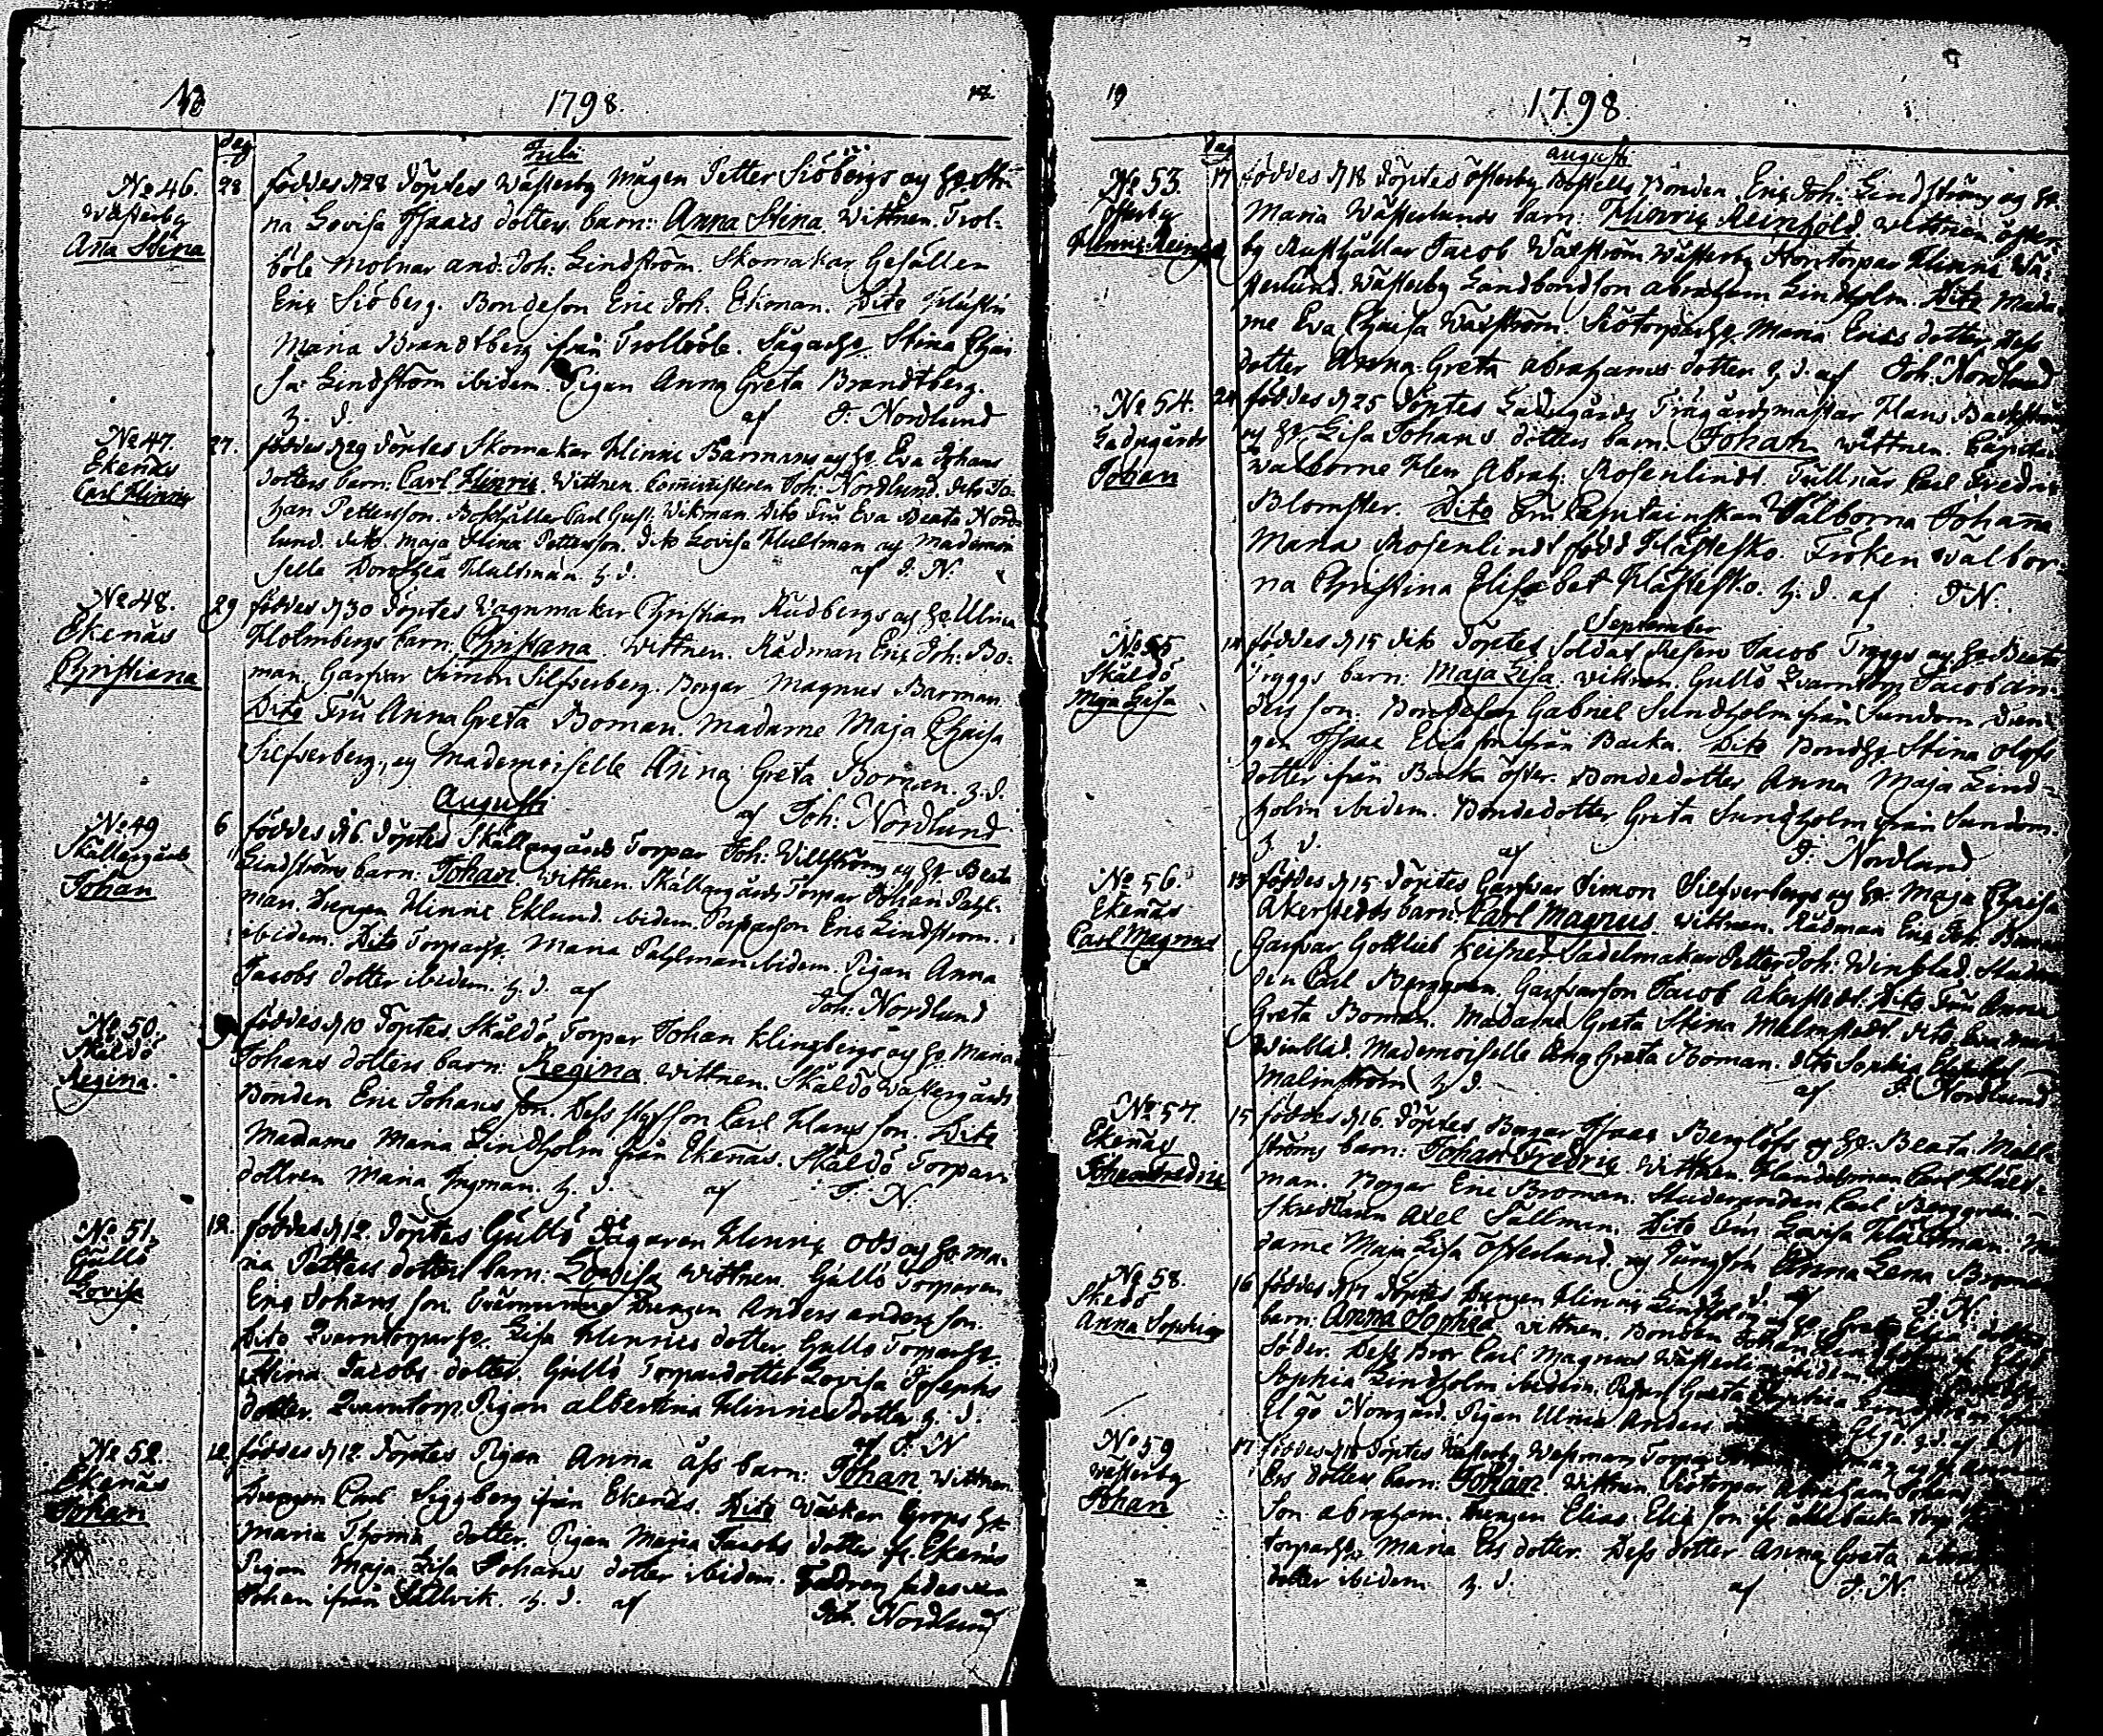 18
1798.
12
dag
Julii
No 46.
Wästerby
Ana Stina
28 föddes d 28 döptes Wästerby Mågen Petter Siöbergs og Hr. Stii
na Lovisa Isaacs dotters barn: Anna Stina. Wittnen. Trol-
böle Molnar And: Joh: Lindström. Skomakar Gesällen
Eric Siöberg. Bondeson Eric Joh: Ekman. Dito
Maria Brandtberg ifrån Trollböle. Stina Chai
sa Lindström ibidem. Pigan Anna Greta Brandtberg.
h. d. af J. Nordlund
No 47.
Ekenäs
Carl Hinric
27. föddes d 29 döptes Skomakar Hinric Barmans og h. Eva Johans
dotters barn: Carl Hinric. Wittnen. Joh: Nordlund. dito Jo-
han Pettersson. Bokhållar Carl Gust. Wikman. Dito Fru Eva Beata Nord-
lund. dito. Maja Stina Pettersson. dito Lovisa Hultman og Mademoi
selle Dorothea Hultman. h. d. af J. N.
No 48.
Ekenäs
Christiana
29 föddes d 30 döptes Wagnmakar Christian Rudbergs og h. Ulrica
Holmbergs barn: Christiana. Wittnen. Rådman Eric Joh: Bo-
man, Garfvar Simon Silfverberg. Borgar Magnus Barman
Dito Fru Anna Greta Boman. Madame Maja Chaisa
Silfverberg, og Mademoiselle Anna Greta Boman. h. d.
af Joh: Nordlund
Augusti
No 49
Skällargårds
Johan
6 föddes d 6. döptes Skällargårds Torpar Joh: Willströms og h. Beata
Lindströms barn: Johan. Wittnen. Skällargårds Torpar Johan Pahl-
man. Drengen Hinric Eklund. ibidem. Torparson Eric Lindström.
ibidem. Dito Torparh. Maria Pahlman ibidem. Pigan Anna
Jacobs dotter ibidem. h. d. af Joh: Nordlund
No 50.
Skåldö
Regina.
9 föddes d 10 döptes. Skåldö Torpar Johan Klingbergs og h. Maria
Johans dotters barn: Regina. Wittnen. Skåldö Wästergårds
Bonden Eric Johans son. Dess styfson Carl Hans son. Dito
Madame Maria Lindholm från Ekenäs. Skåldö Torpars
dottren Maria Ingman. h. d. af J. N.
No 51.
Gullö
Lovisa
12. föddes d 12. döptes Gullö Sågaren Hinric Ods og h. Ma-
ria Petters dotters barn: Lovisa Wittnen. Gullö Torparen
Eric Johans son. Drengen Anders anders son.
Dito Qvarntorparh. Lisa Hinrics dotter. Gullö Torparh.
Stina Jacobs dotter. Gullö Torpardotter Lovisa Josephs
dotter. Qvarntorp. Pigan Albertina Hinrics dotter h. d.
af J. N
No 52.
Ekenäs
Johan
12. föddes d 12. döptes Pigan Anna Ås barn: Johan Wittnen
Drengen Carl Siggberg ifrån Ekenäs. Dito
Maria Thomæ dotter. Pigan Maria Jacobs dotter fr. Ekenäs
Pigan Maja Lisa Johans dotter ibidem.
Johan ifrån Sällvik. h. d. af Joh. Nordlund
19
1798.
dag
Augusti
No 53.
Österby
17 föddes d 18 döptes Österby Bostells Bonden Eric Joh: Lindströms og h.
Maria Wästerlunds barn: Hinric Reinhold. Wittnen. Öster-
by Rusthållar Jacob Waxström Wästerby Storstorpar Hinric Wä-
sterlund. Wästerby Landbondson Abraham Lindholm. Dito Mada-
me Eva Chaisa Waxström. Maria Erics dotter, Dess
dotter Anna Greta Abrahams dotter. h. d. af Joh: Nordlund
No 54.
Ladugårds
Johan
24 föddes d 25 döptes Ladugårds Trägårdsmästar Hans Backström
og h. Lisa Johans dotters barn. Johan Wittnen.
Walborne Herr Abrah: Rosenlindt. Tullnär Carl Fredric
Blomster. Dito Fru Capitainskan Välborna Johana
Maria Rosenlindt född Hästesko. Fröken välbor-
na Christina Elisabet Hästesko. h. d. af J N.
September
No 55
Skåldö
Maja Lisa
14 föddes d 15 dito döptes Soldat Jacob Tryggs og h. Beata
Tryggs barn: Maja Lisa. Wittnen. Gullö Qvarntorp: Jacob An-
ders son. Bondeson Gabriel Sundholm från Sundom dren-
gen Isaac Elia son från Backa. Dito Bondh. Stina Olofs
dotter ifrån Backa Öster. Bondedotter, Anna Maja Lind-
holm ibidem. Bondedotter Greta Sundholm från Sundom.
h. d. af J. Nordlund
No 56.
Ekenäs
Carl Magnus
13 föddes d 15 döptes Garfvar Simon Silfverbergs og h. Maja Chaisa
Åkerstedts barn: Carl Magnus. Wittnen. Rådman Eric Joh. Boman
Garfvar Gottlieb Keisner Sadelmakar Petter Joh: Winblad. Studeran
den Carl Berggren. Garfvarson Jacob Åkerstedt. Dito Fru Anna
Greta Boman. Madame Greta Stina Malmstedt. dito. Eva Maria
Winblad. Mademoiselle Ana Greta Boman. dito Sophia Elisabet
Malmström h d. af J. Nordlund
No 57.
Ekenäs
Johan Fredric
15 föddes d 16. döptes Borgar Isaac Berglöfs og h. Beata Mall-
ströms barn: Johan Fredric Wittnen. Handelsman Carl Hult-
man. Borgar Eric Broman. Studeranden Carl Berggren.
Axel Sallmen. Dito Fru Lovisa Hultman. Ma
dame Maja Lisa Österlund og Jungfru Anna Lena Broman
h. d. af J. N.
No 58.
Skedö
Anna Sophia
16 föddes d 17 döptes Drengen Hinric Lindholms og h. Greta Elia dotters
barn: Anna Sophia Wittnen. Bonden Johan
Söder. Dess Bror Carl Magnus Wästerlin ibidem.
Sophia Lindholm ibidem. Pigan Greta Sophia
Elgö Norrgård. Pigan Ulrica Anders
No 59
Wästerby
Johan
17 föddes d 18 döptes Wästerby
Ers dotters barn: Johan. Wittnen. Siötorpar Abraham Johans
son. Abraham. Drengen Elias Elia son
torparh. Maria Ers dotter. Dess dotter Anna Greta
dotter ibidem h. d. af J. N.